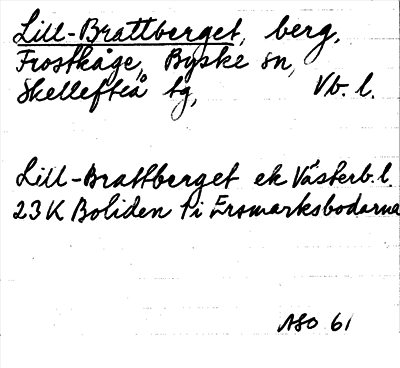 Lill-Brattberget, berg,
Frostkåge, Byske sn,
Skellefteå tg, Vb. l.
Lill-Brattberget ek Västerb. l.
23K Boliden ti Ersmarksbodarna
ASO 61